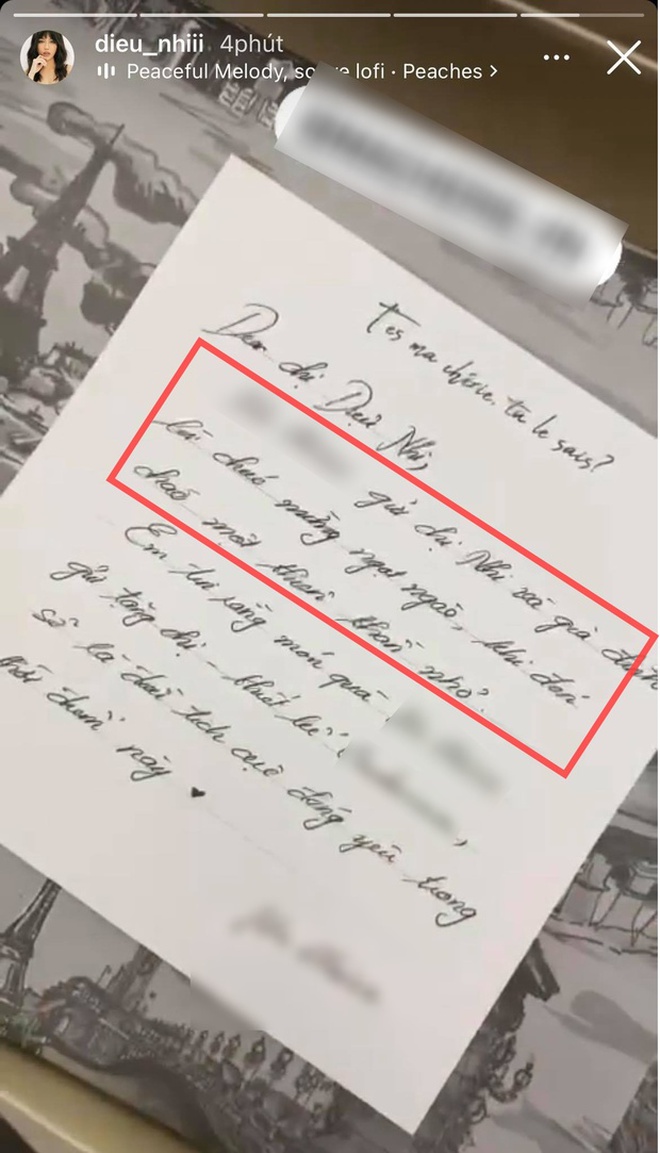 dieu_nhiii 4phút
Peaceful Melody, lofi · Peaches
T'es ma chérie. tu le sais?
Dear chị Diệu Nhi,
gửi chị Nhi và gia đình
lời chúc mừng ngọt ngào, khi đón
chào một thiên thần nhỏ.
Em tin rằng món quà
gửi tặng chị - thiết kế
sẽ là dấu tích cực đáng yêu trong
thời điểm này ♥